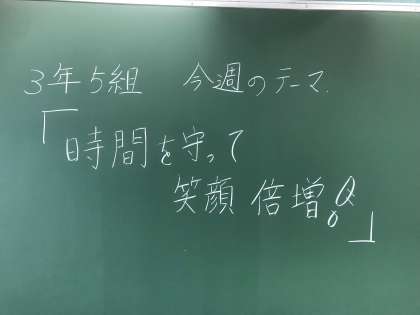 3年5組 今週のテーマ.
「時間を守って
笑顔 倍増!」